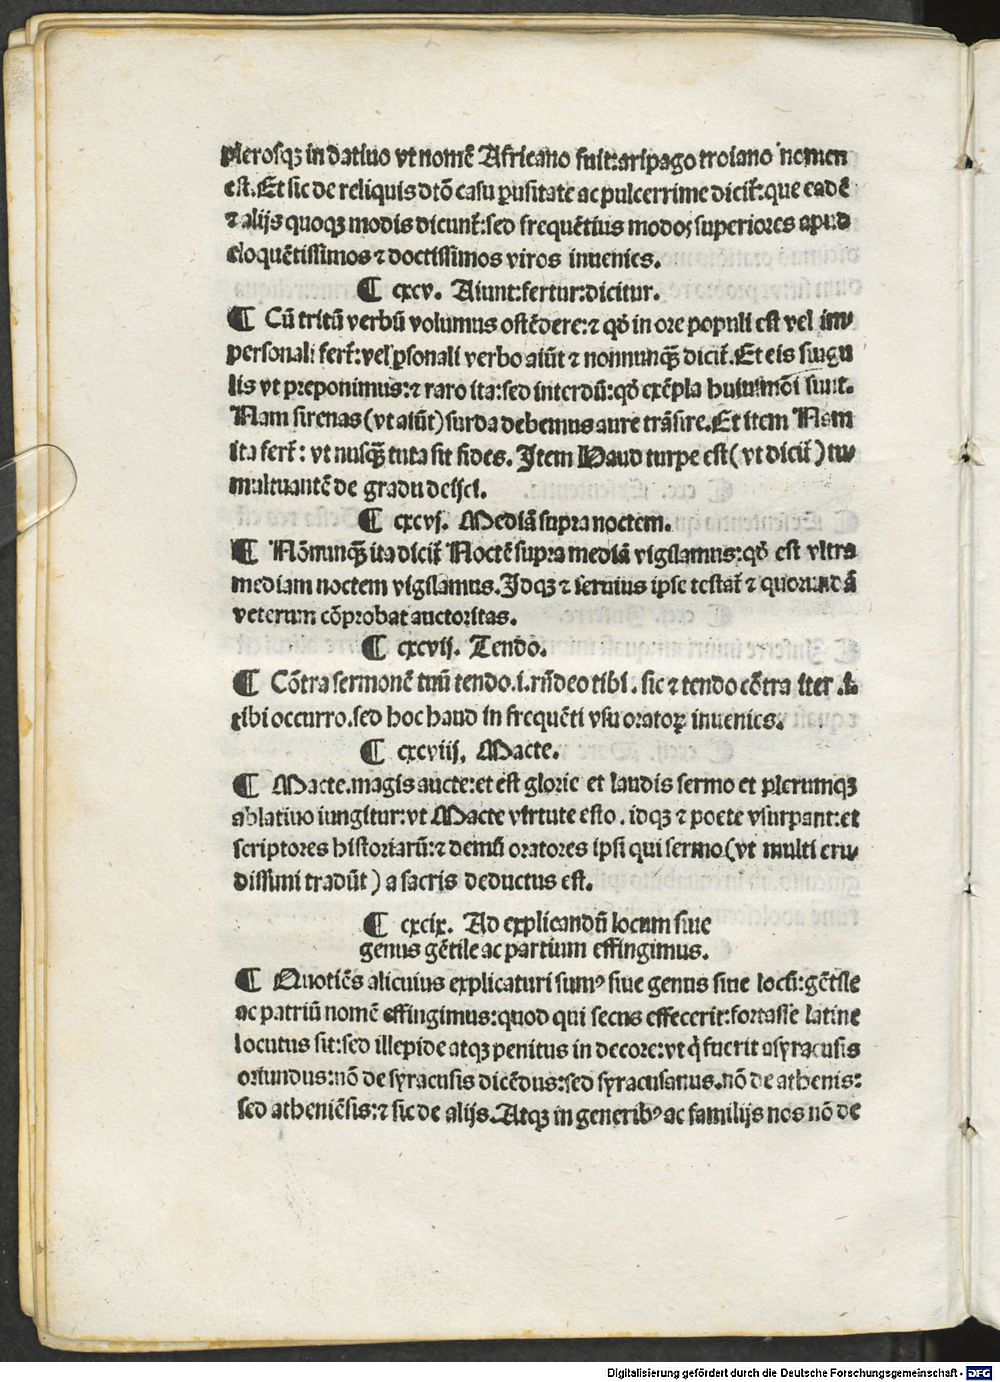 plerosqꝫ in datiuo vt nomē Africano fuit:aripago troiano nomen
est. Et sic de reliquis dtō casu ꝑusitate ac pulcerrime dicit̄:que eadē
⁊ alijs quoqꝫ modis dicunt̄:sed frequētius modoꝫ superiores apud
eloquētissimos ⁊ doctissimos viros inuenies.
¶ cxcv. Aiunt:fertur:dicitur.
¶ Cū tritū verbū volumus ostēdere:⁊ qd̄ in ore populi est vel im⸗
personali fert̄:vel ꝑsonali verbo aiūt ⁊ nonnunqꝫ̄ dicit̄. Et eis singu
lis vt preponimus:⁊ raro ita:sed interdū:qd̄ exēpla huiusmōi sunt.
Nam sirenas (vt aiūt) surda debemus aure trāsire. Et item Nam
ita fert̄: vt nusqꝫ̄ tuta sit fides. Item Haud turpe est (vt dicit̄) tu⸗
multuantē de gradu deijci.
¶ cxcvj. Mediā supra noctem.
¶ Nōnunqꝫ̄ ita dicit̄ Noctē supra mediā vigilamus:qd̄ est vltra
mediam noctem vigilamus. Idqꝫ ⁊ seruius ipse testat̄ ⁊ quorundā
veterum cōprobat auctoritas.
¶ cxcvij. Tendo.
¶ Cōtra sermonē tuū tendo.i.rn̄deo tibi. sic ⁊ tendo cōtra iter .i.
tibi occurro.sed hoc haud in frequēti vsu oratoꝝ inuenies.
¶ cxcviij. Macte.
¶ Macte.magis aucte:et est glorie et laudis sermo et plerumqꝫ
ablatiuo iungitur:vt Macte virtute esto. idqꝫ ⁊ poete vsurpant:et
scriptores historiarū:⁊ demū oratores ipsi qui sermo (vt multi eru⸗
dissimi tradūt) a sacris deductus est.
¶ cxcix. Ad explicandū locum siue
genus gētile ac partium effingimus.
¶ Quotiēs alicuius explicaturi sumꝰ siue genus siue locū:gētile
ac patriū nomē effingimus:quod qui secus effecerit:fortasse latine
locutus sit:sed illepide atqꝫ penitus in decore:vt q̄ fuerit a syracusis
oriundus:nō de syracusis dicēdus:sed syracusanus.nō de athenis:
sed atheniēsis:⁊ sic de alijs. Atqꝫ in generibꝰ ac familijs nos nō de
Digitalisierung gefördert durch die Deutsche Forschungsgemeinschaft - DFG